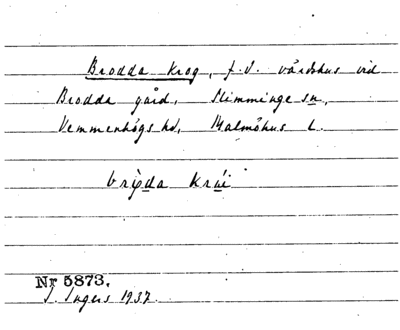 Brodda Krog, f.d. värdshus vid
Brodda gård, Slimminge sn,
Vemmenhögs hd, Malmöhus l.
Nr 5873.
I. Ingers 1937.